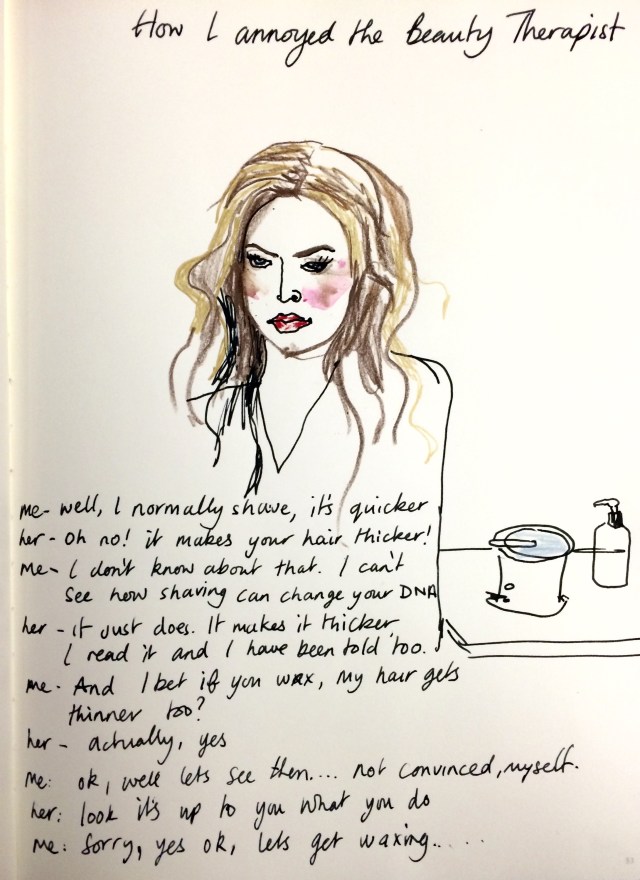 How I annoyed the Beauty Therapist
me- well, I normally shave, it's quicker
her- Oh no! it makes your hair thicker!
me- I don't know about that. I can't
see how shaving can change your DNA
her - it just does. It makes it thicker,
I read it and I have been told too.
me- And I bet if you wax, my hair gets
thinner too?
her - actually, yes
me: ok, well lets see then.... not convinced, myself.
her: look it's up to you what you do
me: Sorry, yes ok, lets get waxing.. ....
93